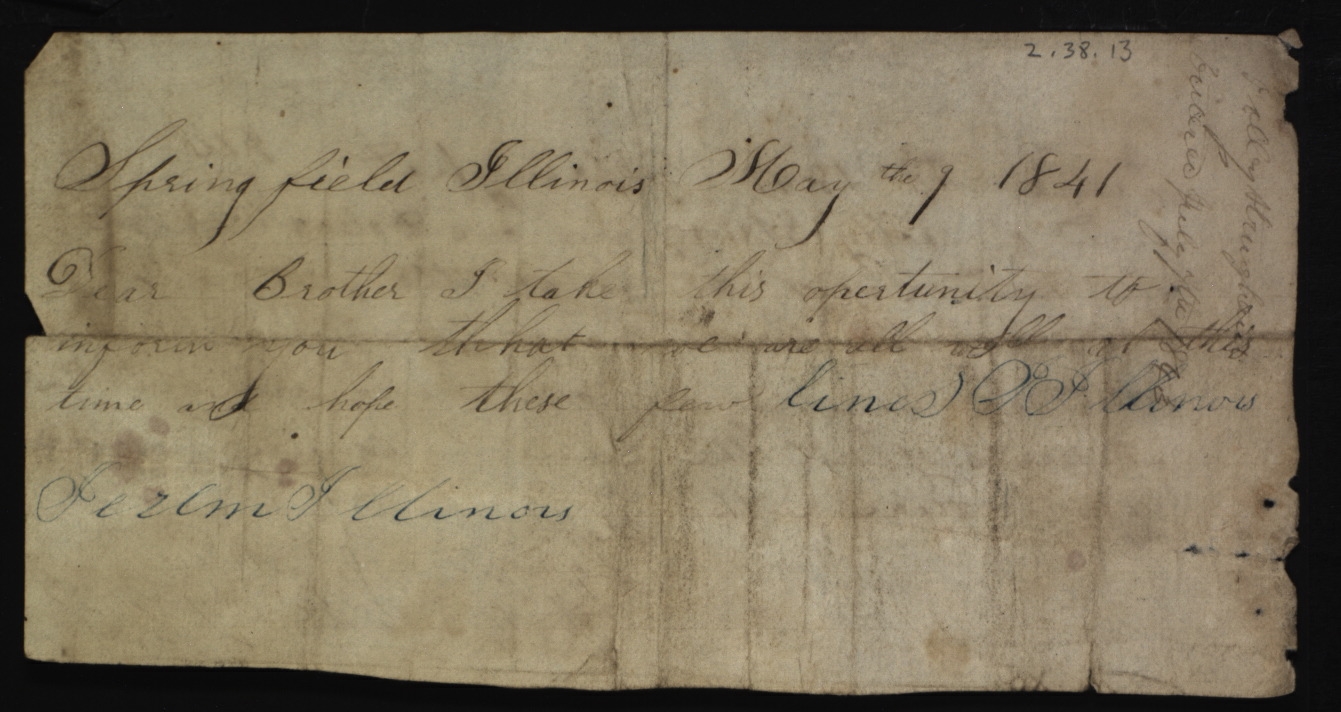 2.38.13
Springfield Illinois May the 9 1841
Dear Brother I take this opertunity to
inform you thhat we are all well at this
time and hope these few lines) Illinois
Illinois
July the